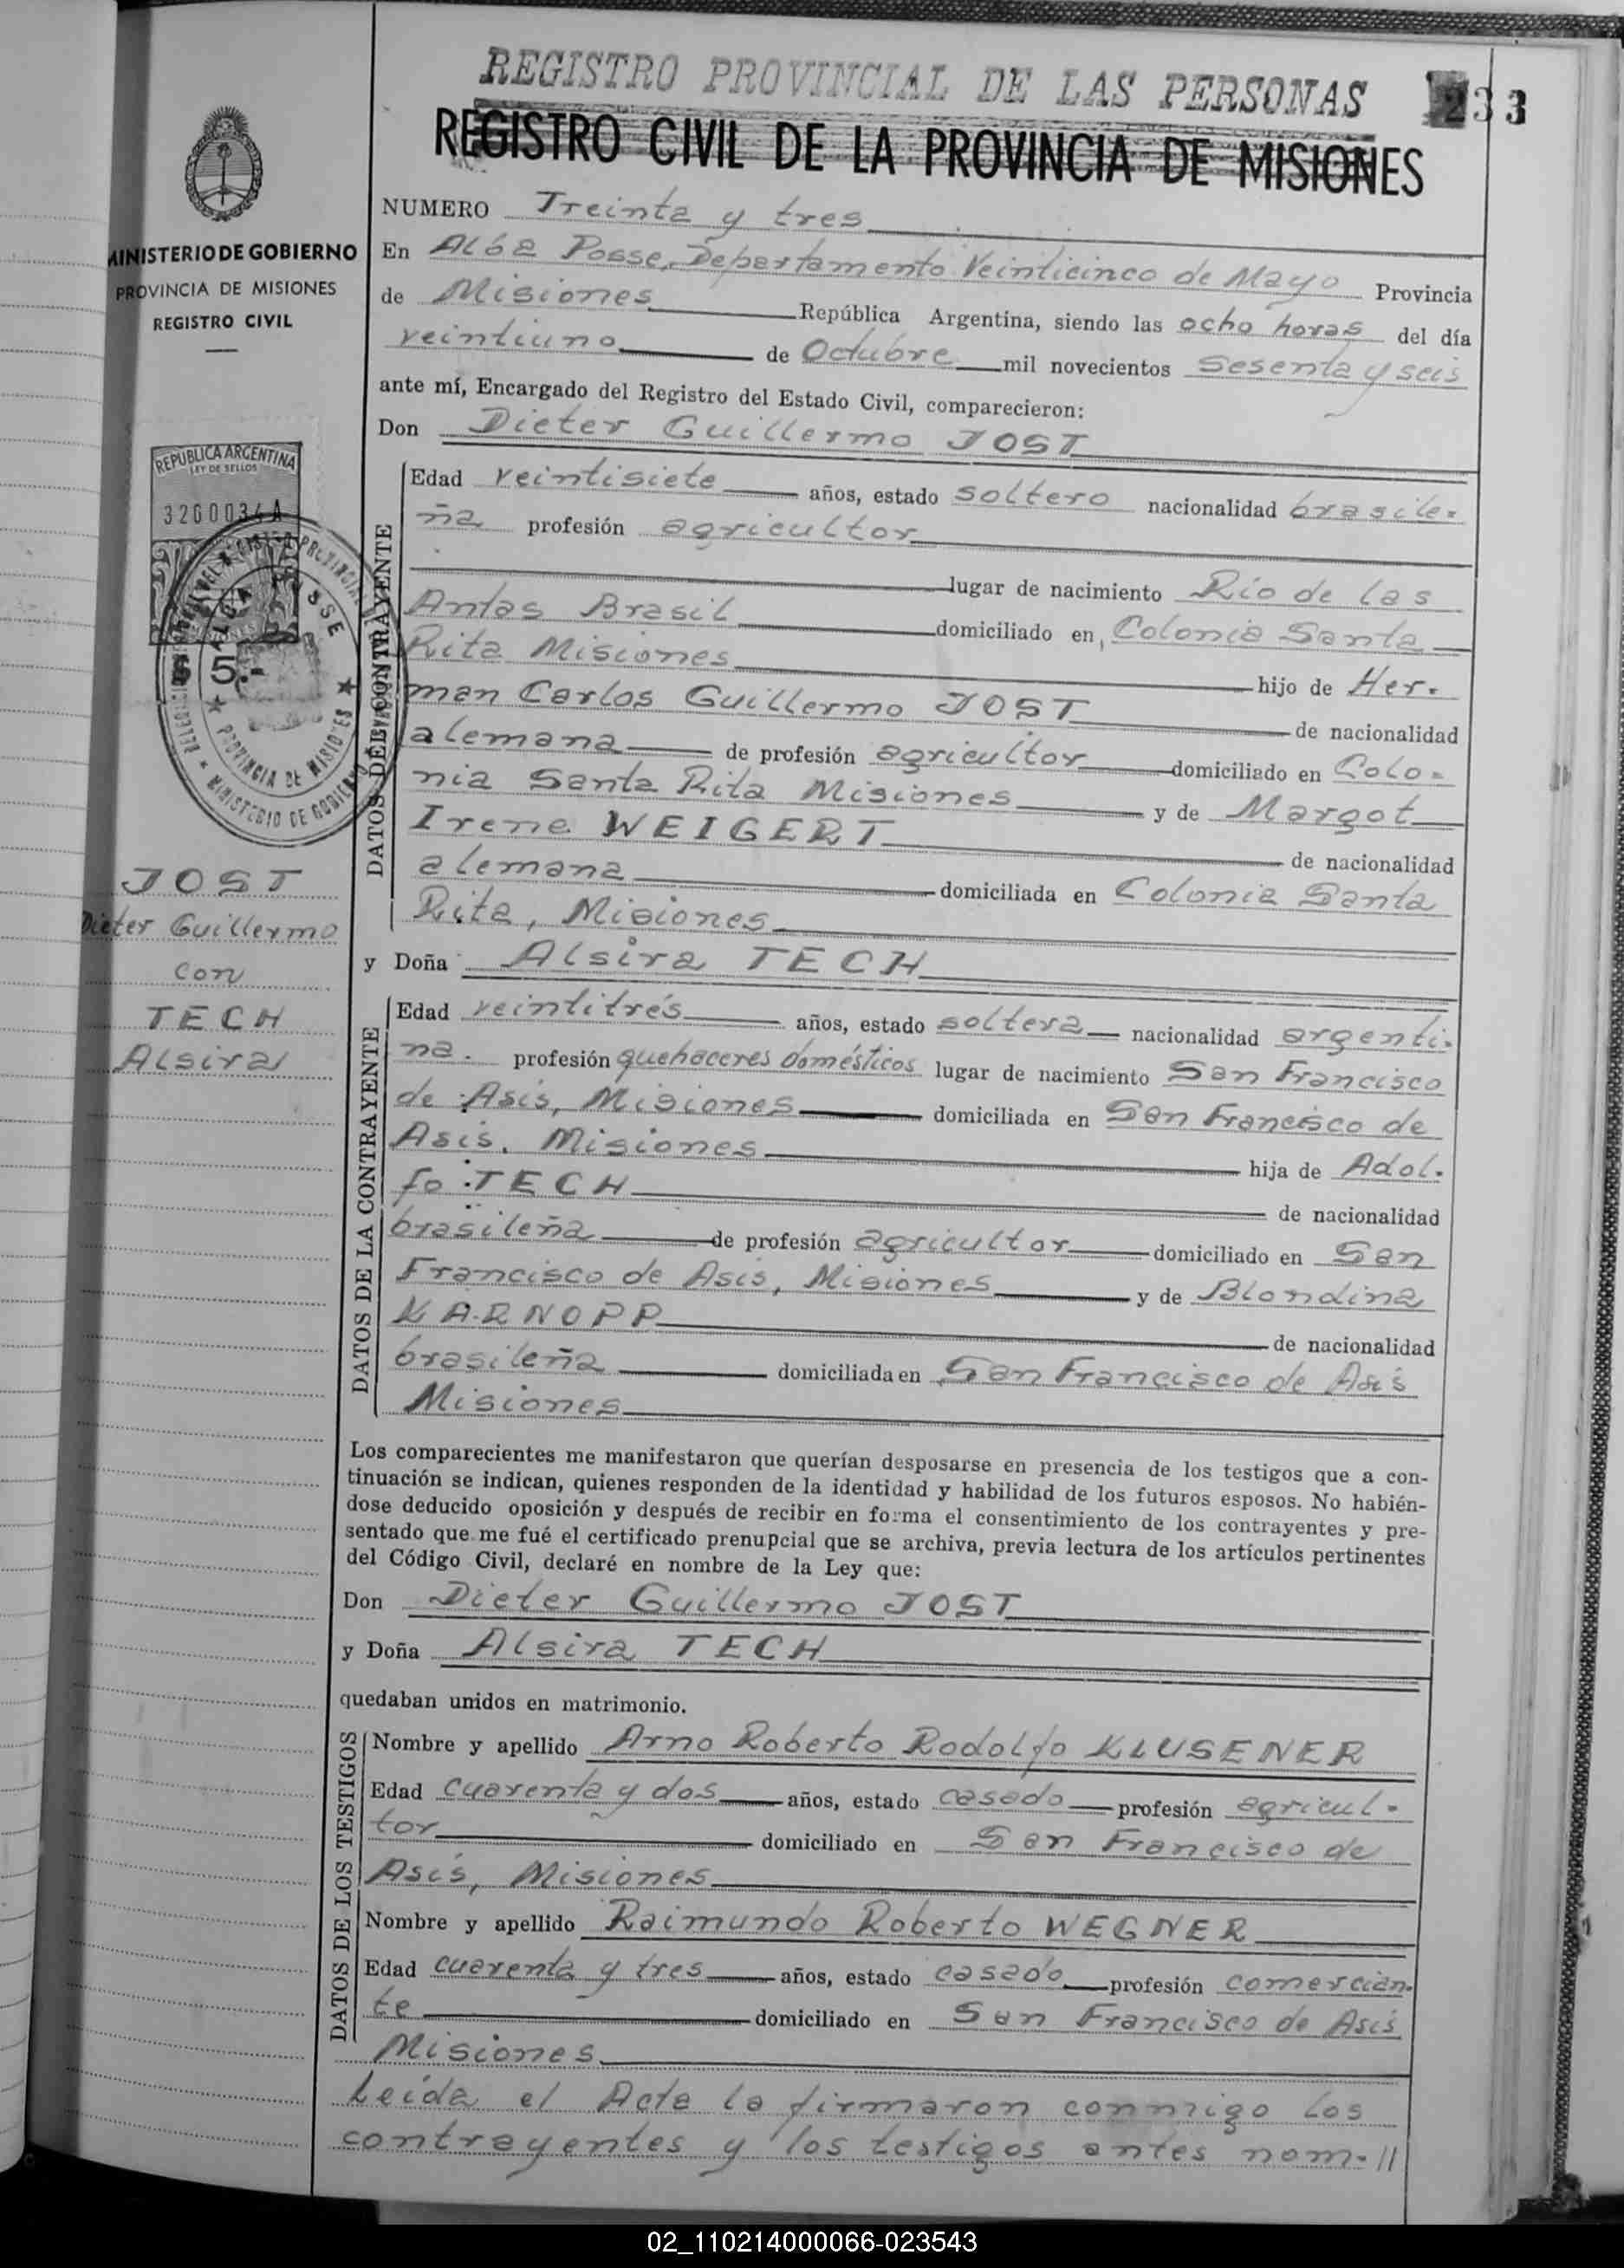 REGISTRO PROVINCIAL DE LAS PERSONAS 233
REGISTRO CIVIL DE LA PROVINCIA DE MISIONES
MINISTERIO DE GOBIERNO
PROVINCIA DE MISIONES
REGISTRO CIVIL
NUMERO Treinta y tres
En Alba Posse, Departamento Veinticinco de Mayo Provincia
de Misiones República Argentina, siendo las ocho horas del día
veintiuno de Octubre mil novecientos sesenta y seis
ante mí, Encargado del Registro del Estado Civil, comparecieron:
Don Dieter Guillermo JOST
REPUBLICA ARGENTINA
LEY DE SELLOS
3200034A
$ 5.-
ALBA POSSE
PROVINCIA DE MISIONES
MINISTERIO DE GOBIERNO
DATOS DEL CONTRAYENTE
Edad veintisiete años, estado soltero nacionalidad brasile-
ña profesión agricultor
lugar de nacimiento Río de las
Antas Brasil domiciliado en, Colonia Santa
Rita Misiones hijo de Her-
man Carlos Guillermo JOST de nacionalidad
alemana de profesión agricultor domiciliado en Colo-
nia Santa Rita Misiones y de Margot
Irene WEIGERT de nacionalidad
alemana domiciliada en Colonia Santa
Rita, Misiones
JOST
Dieter Guillermo
con
TECH
Alsira
y Doña Alsira TECH
DATOS DE LA CONTRAYENTE
Edad veintitrés años, estado soltera nacionalidad argenti-
na. profesión quehaceres domésticos lugar de nacimiento San Francisco
de Asís, Misiones domiciliada en San Francisco de
Asís. Misiones hija de Adol-
fo TECH de nacionalidad
brasileña de profesión agricultor domiciliado en San
Francisco de Asís, Misiones y de Blondina
KARNOPP de nacionalidad
brasileña domiciliada en San Francisco de Asís
Misiones
Los comparecientes me manifestaron que querían desposarse en presencia de los testigos que a con-
tinuación se indican, quienes responden de la identidad y habilidad de los futuros esposos. No habién-
dose deducido oposición y después de recibir en forma el consentimiento de los contrayentes y pre-
sentado que me fué el certificado prenupcial que se archiva, previa lectura de los artículos pertinentes
del Código Civil, declaré en nombre de la Ley que:
Don Dieter Guillermo JOST
y Doña Alsira TECH
quedaban unidos en matrimonio.
DATOS DE LOS TESTIGOS
Nombre y apellido Arno Roberto Rodolfo KLUSENER
Edad cuarenta y dos años, estado casado profesión agricul-
tor domiciliado en San Francisco de
Asís, Misiones
Nombre y apellido Raimundo Roberto WEGNER
Edad cuarenta y tres años, estado casado profesión comercian-
te domiciliado en San Francisco de Asís
Misiones
Leída el Acta la firmaron conmigo los
contrayentes y los testigos antes nom-//
02_110214000066-023543